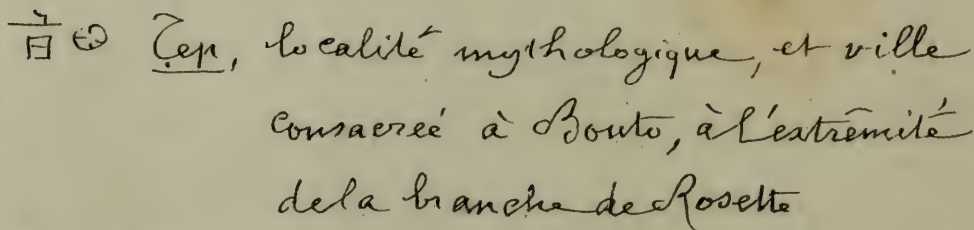 Tep, localité mythologique, et ville
consacreé à Bouto, à l'extrêmité
de la branche de Rosette